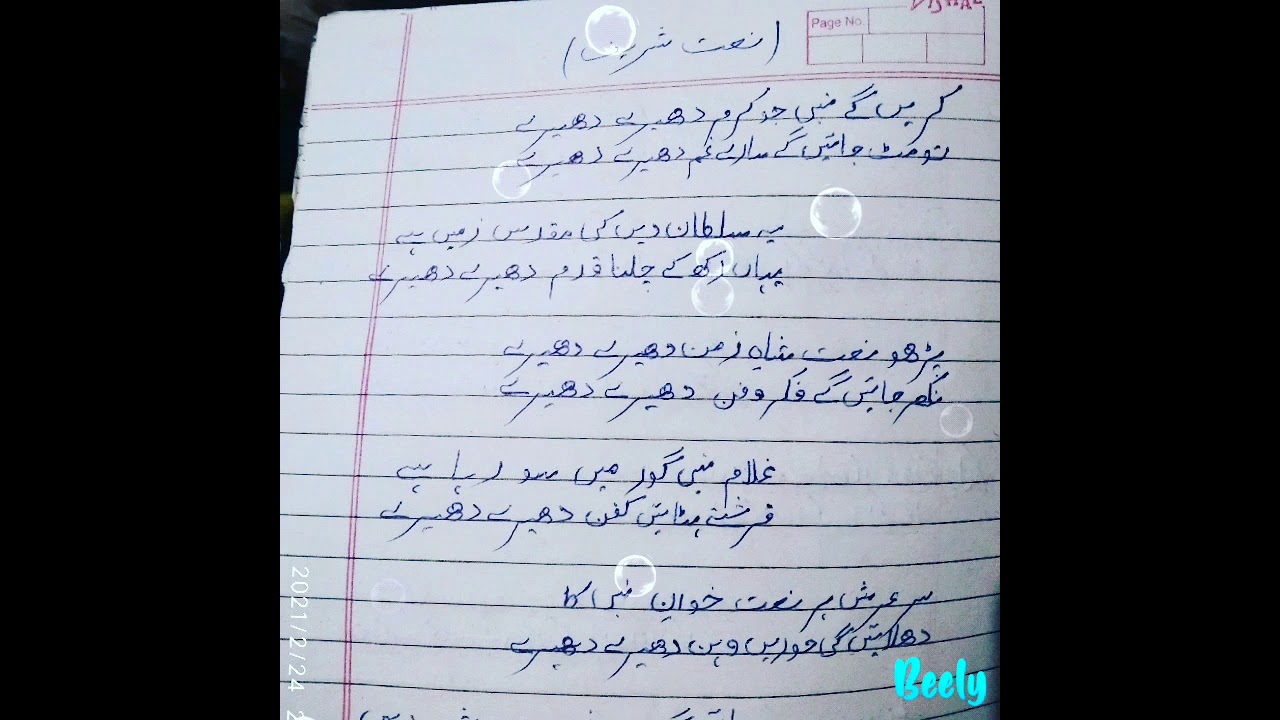 VISHAL
Page No.
(نعت شریف)
کریں گے نبی جو کرم دھیرے دھیرے
تو مٹ جائیں گے سارے غم دھیرے دھیرے
یہ سلطان دیں کی مقدس زمیں ہے
یہاں رکھ کے چلنا قدم دھیرے دھیرے
پڑھو نعت شاہِ زمن دھیرے دھیرے
نکھر جائیں گے فکر و فن دھیرے دھیرے
غلام نبی گور میں سو رہا ہے
فرشتے ہٹائیں کفن دھیرے دھیرے
سر عرش پر نعت خوانِ نبی کا
دھلائیں گی حوریں دہن دھیرے دھیرے
2021/2/24
Beely